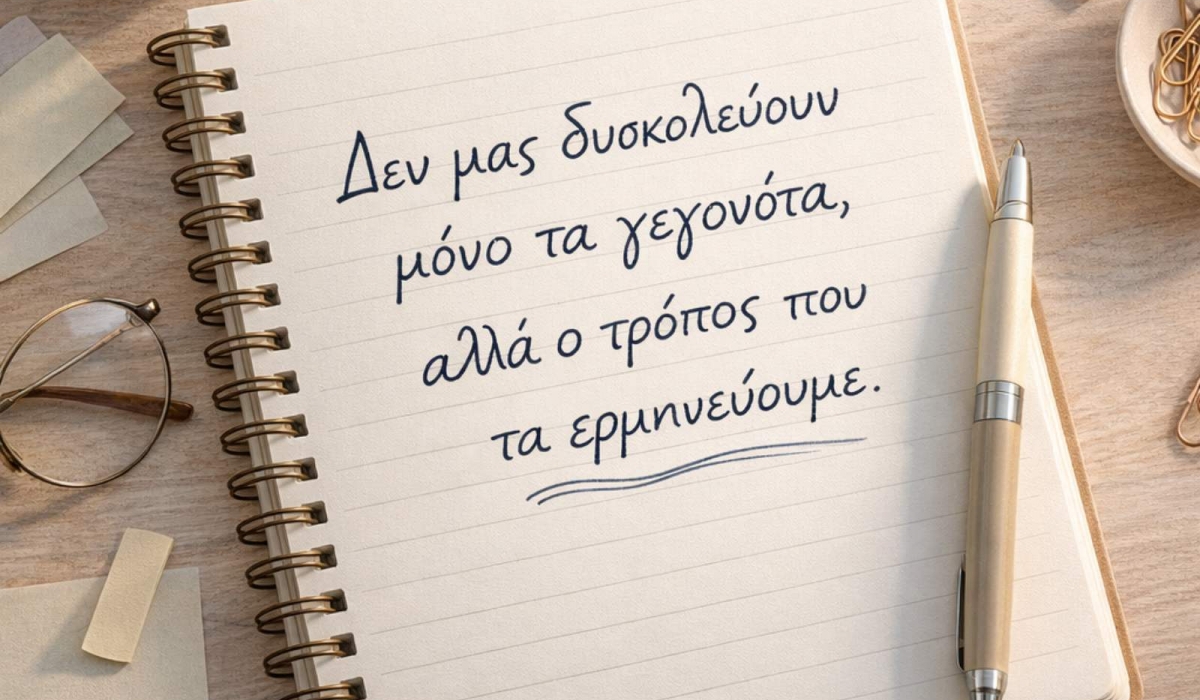 Δεν μας δυσκολεύουν
μόνο τα γεγονότα,
αλλά ο τρόπος που
τα ερμηνεύουμε.